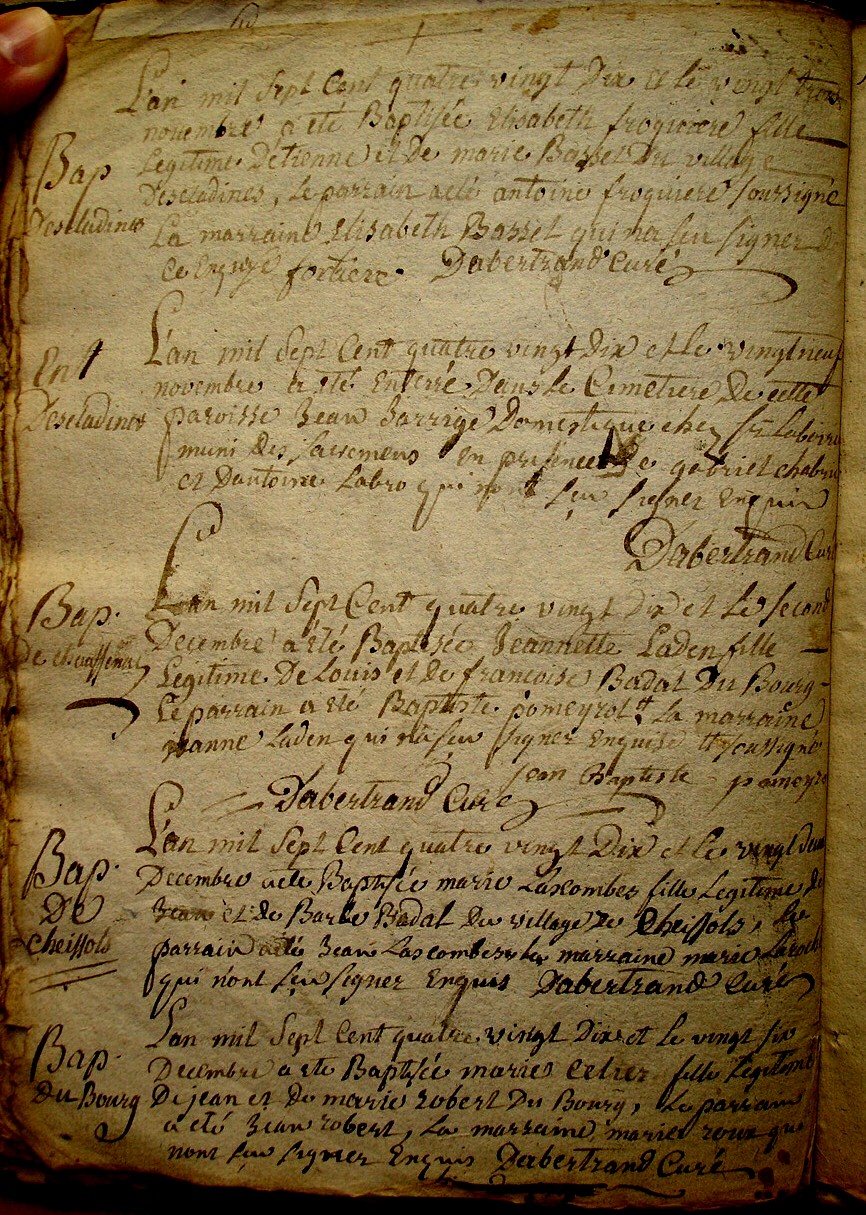 L'an mil Sept Cent quatre vingt Dix et le vingt trois
novembre a été Baptisée Elisabeth froquiere fille
Bap
Legitime Detienne et De marie Basset Du village
Descladines
Descladines, Le parrain a eté antoine froquiere soussigné
La marraine Elisabeth Basset qui na seu signer
Ce Enquise Dabertrand Curé
Ent
L'an mil Sept Cent quatre vingt Dix et le vingt neuf
novembre a eté Enterré Dans Le Cimetiere De cette
Descladines
paroisse Jean Jarrige Domestique chez sr
muni Des sacremens en presence De gabriel
et Dantoine Labro qui nont seu signer Enquis
Dabertrand Curé
Bap.
L'an mil Sept Cent quatre vingt Dix et Le second
Decembre a été Baptisée Jeannette Laden fille
de
Legitime De Louis et de francoise Badal Du Bourg
Le parrain a eté Baptiste pomeyrol La marraine
jeanne Laden qui na seu signer Enquise soussigné
jean Baptiste pomeyrol
Dabertrand Curé
L'an mil Sept Cent quatre vingt Dix et Le vingt deux
Bap.
Decembre a eté Baptisée marie Lascombes fille Legitime de
De
Jean et de Barbe Badal Du village De Cheissols, Le
Cheissols
parrain a eté Jean Lascombes La marraine marie
qui n'ont seu signer Enquis Dabertrand Curé
L'an mil Sept Cent quatre vingt Dix et Le vingt six
Bap.
Decembre a eté Baptisée marie fille Légitime
Du Bourg
De jean et De marie robert Du Bourg, Le parrain
a eté Jean robert, La marraine marie roux qui
nont seu signer Enquis Dabertrand Curé